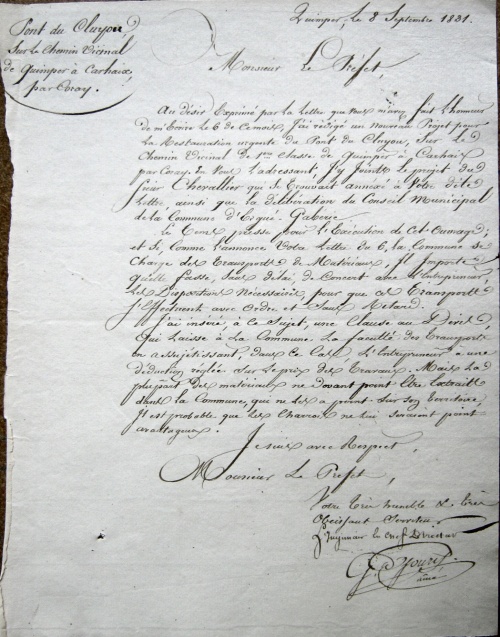 Quimper, le 8 Septembre 1831.
Pont du Cluyou
Sur le Chemin Vicinal
de Quimper à Carhaix
par Coray.
Monsieur Le Préfet,
Au désir Exprimé par la Lettre que Vous m'avez fait L'honneur
de m'Ecrire le 6 de Ce mois, J'ai rédigé un nouveau Projet pour
La Restauration urgente du Pont du Cluyou, Sur Le
Chemin Vicinal de 1ère Classe de Quimper à Carhaix
par Coray. En Vous L'adressant, J'y joins le projet du
Sieur Chevallier qui Se Trouvait annexé à Votre dite
Lettre, ainsi que la délibération du Conseil Municipal
de la Commune d'Ergué-Gaberic.
Le Tems presse pour l'Exécution de Cet Ouvrage;
et Si, Comme l'annonce Votre Lettre du 6, la Commune Se
Charge des Transports de Matériaux, Il Importe
qu'elle fasse, Sans délai, de Concert avec l'Entrepreneur
Les Dispositions Nécessaires, pour que Ces Transports
S'Effectuent avec Ordre et Sans Retard.
J'ai inséré, à ce Sujet, une Clause au Devis,
Qui Laisse à La Commune La faculté des Transports
en assujetissant, dans ce Cas, L'Entrepreneur à une
déduction réglée Sur Le prix des Travaux. Mais La
plupart des matériaux ne devant point être Extraits
dans la Commune, qui ne les a point Sur Son Territoire,
Il est probable que Les Charrois ne lui Seraient point
avantageux.
Je suis avec Respect,
Monsieur Le Préfet,
Votre très humble & très
Obéissant Serviteur.
L'Ingénieur en chef Directeur
aîné